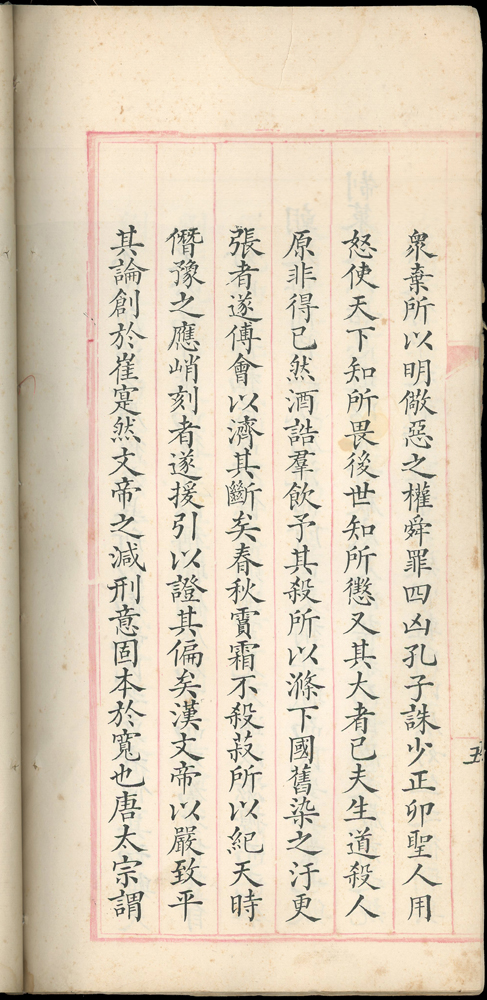 衆棄所以明儆惡之權舜罪四凶孔子誅少正卯聖人用
怒使天下知所畏後世知所懲又其大者已夫生道殺人
原非得已然酒誥羣飲予其殺所以滌下國舊染之汙更
張者遂傅會以濟其斷矣春秋霣霜不殺菽所以紀天時
僭豫之應峭刻者遂援引以證其偏矣漢文帝以嚴致平
其論創於崔寔然文帝之減刑意固本於寬也唐太宗謂
五